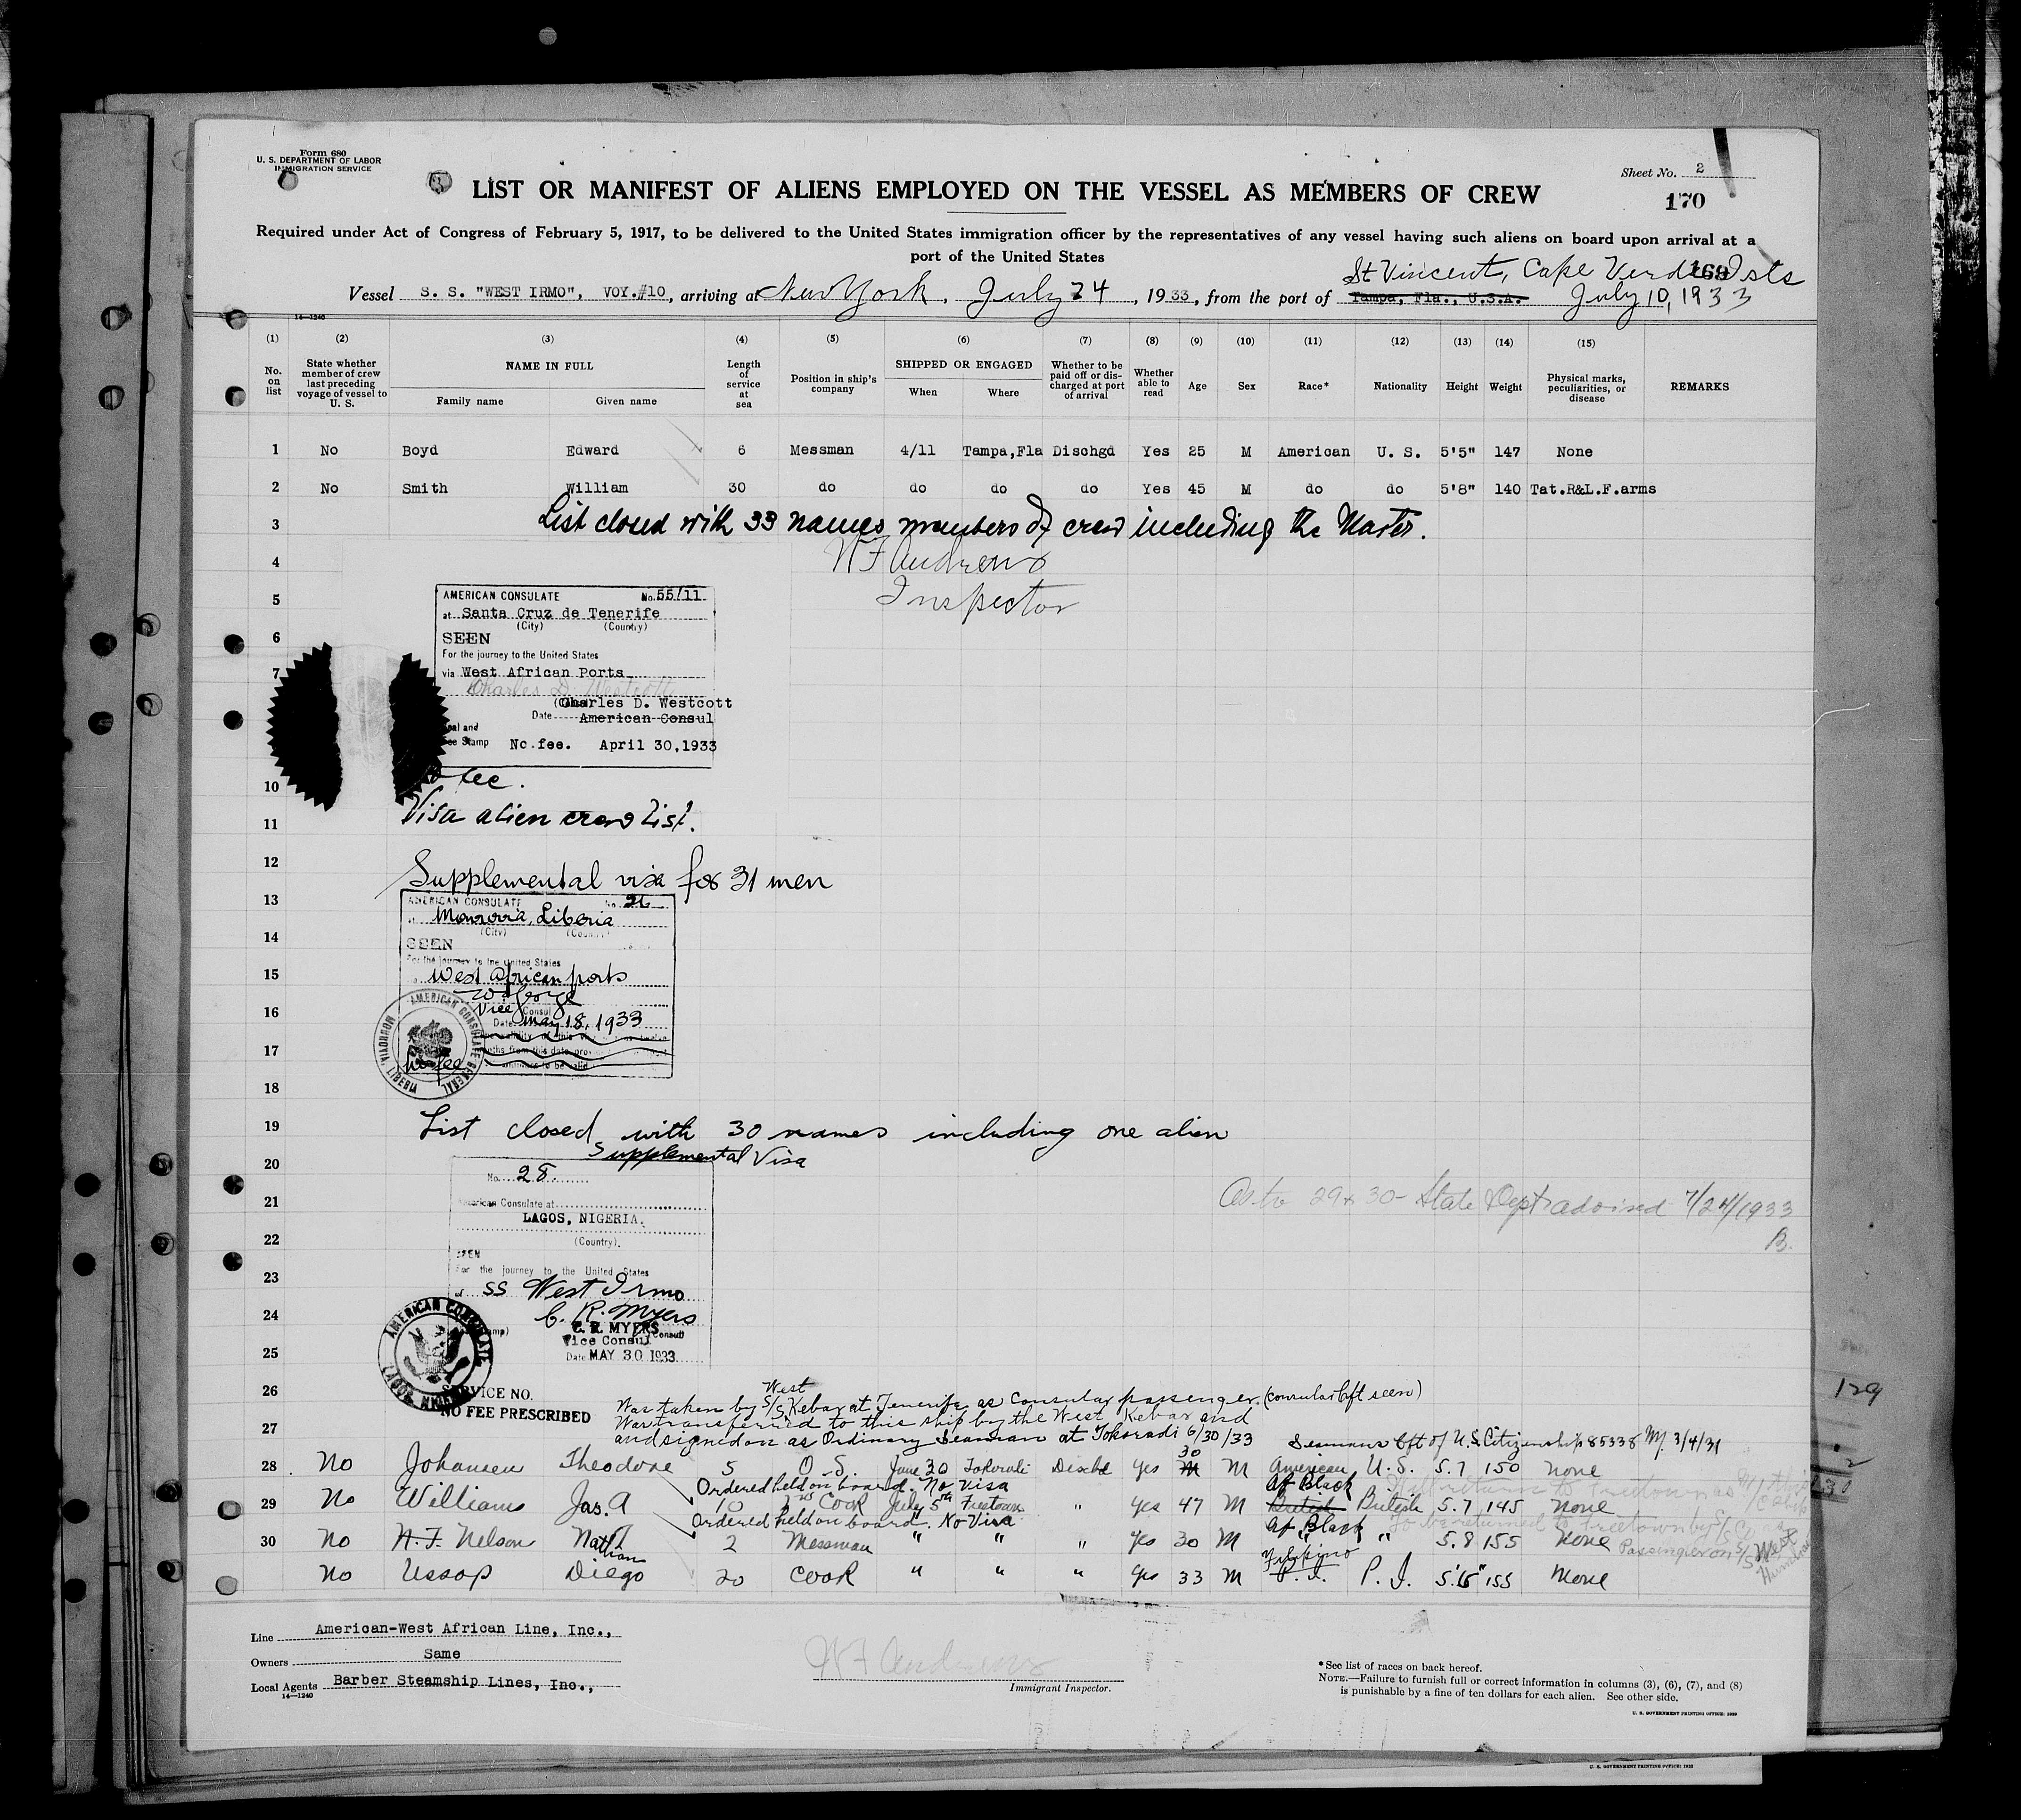 Form 680
U. S. DEPARTMENT OF LABOR
IMMIGRATION SERVICE
Sheet No. 2
LIST OR MANIFEST OF ALIENS EMPLOYED ON THE VESSEL AS MEMBERS OF CREW
170
Required under Act of Congress of February 5, 1917, to be delivered to the United States immigration officer by the representatives of any vessel having such aliens on board upon arrival at a
port of the United States
St Vincent, Cape Verde Isls
169
Vessel S. S. "WEST IRMO", VOY.#10, arriving at New York, July 24, 1933, from the port of Tampa, Fla., U.S.A. July 10, 1933
14—1240
(1) (2) (3) (4) (5) (6) (7) (8) (9) (10) (11) (12) (13) (14) (15)
No. on list State whether member of crew last preceding voyage of vessel to U. S. NAME IN FULL Family name Given name Length of service at sea Position in ship's company SHIPPED OR ENGAGED When Where Whether to be paid off or discharged at port of arrival Whether able to read Age Sex Race* Nationality Height Weight Physical marks, peculiarities, or disease REMARKS
1 No Boyd Edward 6 Messman 4/11 Tampa,Fla Dischgd Yes 25 M American U. S. 5'5" 147 None
2 No Smith William 30 do do do do Yes 45 M do do 5'8" 140 Tat.R&L.F.arms
3 List closed with 33 names members of crew including the Master.
4 W F Andrews
5 Inspector
AMERICAN CONSULATE No. 55/11
at Santa Cruz de Tenerife
(City) (Country)
6 SEEN
For the journey to the United States
7 via West African Ports
Charles D. Westcott
Charles D. Westcott
Date American Consul
No fee. April 30,1933
10 No fee.
11 Visa alien crew list.
12 Supplemental visa for 31 men
13 AMERICAN CONSULATE No. 26
Monrovia, Liberia
(City) (Country)
14 SEEN
For the journey to the United States
15 West African ports
W George
16 Vice Consul
Date May 18, 1933
17 No fee
AMERICAN CONSULATE GENERAL MONROVIA, LIBERIA
18
19 List closed with 30 names including one alien
Supplemental Visa
20 No. 28.
21 American Consulate at
LAGOS, NIGERIA.
As to 29 & 30 - State Dept advised 7/24/1933
B.
22 (Country).
SEEN
23 For the journey to the United States
SS West Irmo
24 C. R. Myers
C. R. MYERS
Vice Consul
25 Date MAY 30 1933
AMERICAN CONSULATE LAGOS, NIGERIA
26 SERVICE NO.
NO FEE PRESCRIBED
Was taken by S/S West Kebar at Tenerife as Consular passenger. (consular Cft seen)
27 Was transferred to this ship by the West Kebar and
and signed on as Ordinary Seaman at Tokoradi 6/30/33
Seamans Cft of U.S. Citizenship 85338 3/4/31
28 No Johansen Theodore 5 O. S. June 30 Tokoradi Dischd Yes 30 M American U. S. 5.7 150 none
Ordered held on board. No Visa
29 No Williams Jas. A 10 2nd Cook July 5th Freetown " yes 47 M British Af Black British 5.7 145 none
Ordered held on board. No Visa
30 No A. F. Nelson Nathan 2 Messman " " " yes 30 M Af Black " 5.8 155 none
To be returned to Freetown by S/S
Passenger on S/S West Humhaw
No Ussop Diego 20 Cook " " " Yes 33 M P. I. Filipino P. I. 5'5" 155 None
129
Line American-West African Line, Inc.,
Owners Same
Local Agents Barber Steamship Lines, Inc.,
14—1240
W F Andrews
Immigrant Inspector.
*See list of races on back hereof.
NOTE.—Failure to furnish full or correct information in columns (3), (6), (7), and (8)
is punishable by a fine of ten dollars for each alien. See other side.
U. S. GOVERNMENT PRINTING OFFICE: 1929